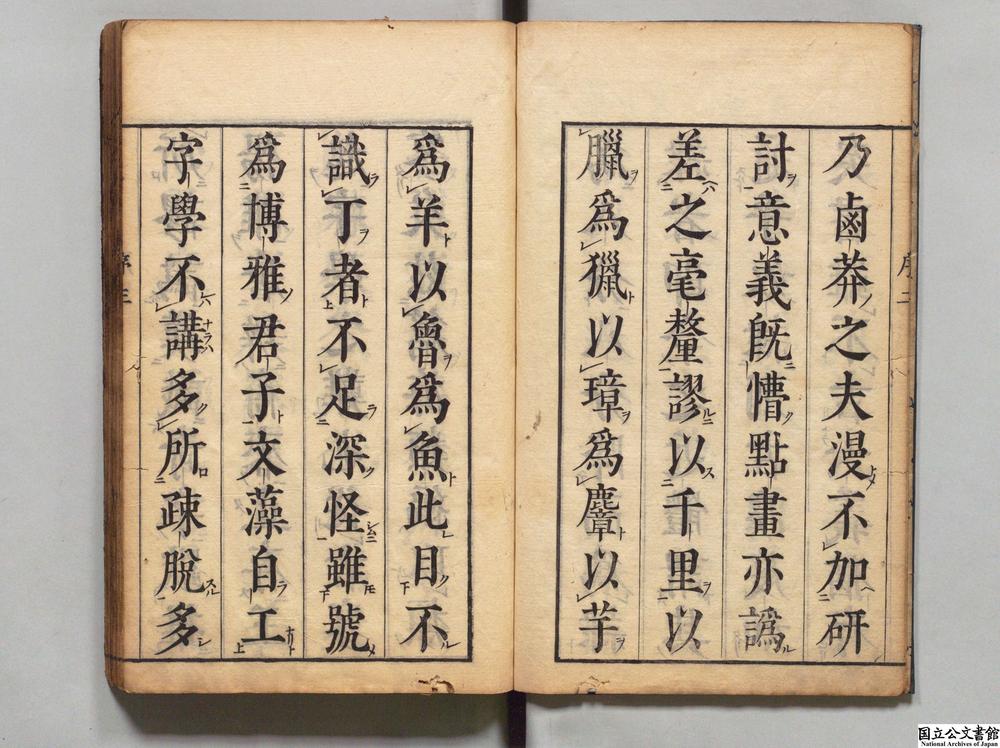 乃鹵莽之夫漫不加研
討意義既懵點畫亦譌
差之毫釐謬以千里以
臘爲獵以璋爲麞以芋
序二
爲羊以魯爲魚此目不
識丁者不足深怪雖號
爲博雅君子文藻自工
字學不講多所疎脫多
序三
国立公文書館
National Archives of Japan